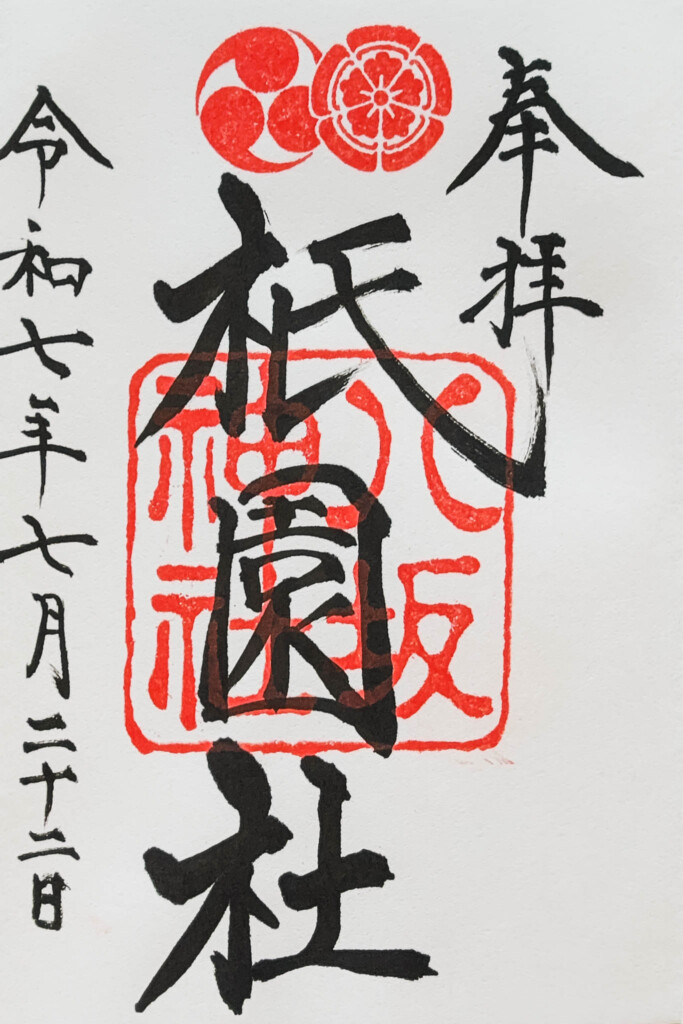 奉拝
八坂
神社
祇園社
令和七年七月二十二日